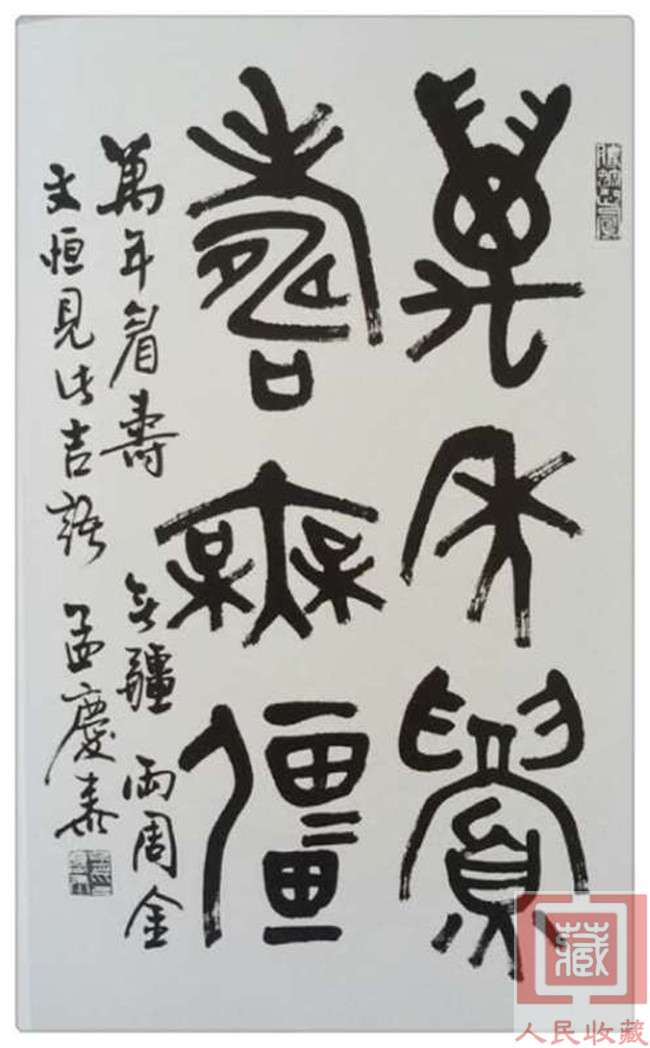 萬年眉
壽無疆
萬年眉壽無疆 兩周金
文恒見此吉語 孟慶泰
藏
人民收藏